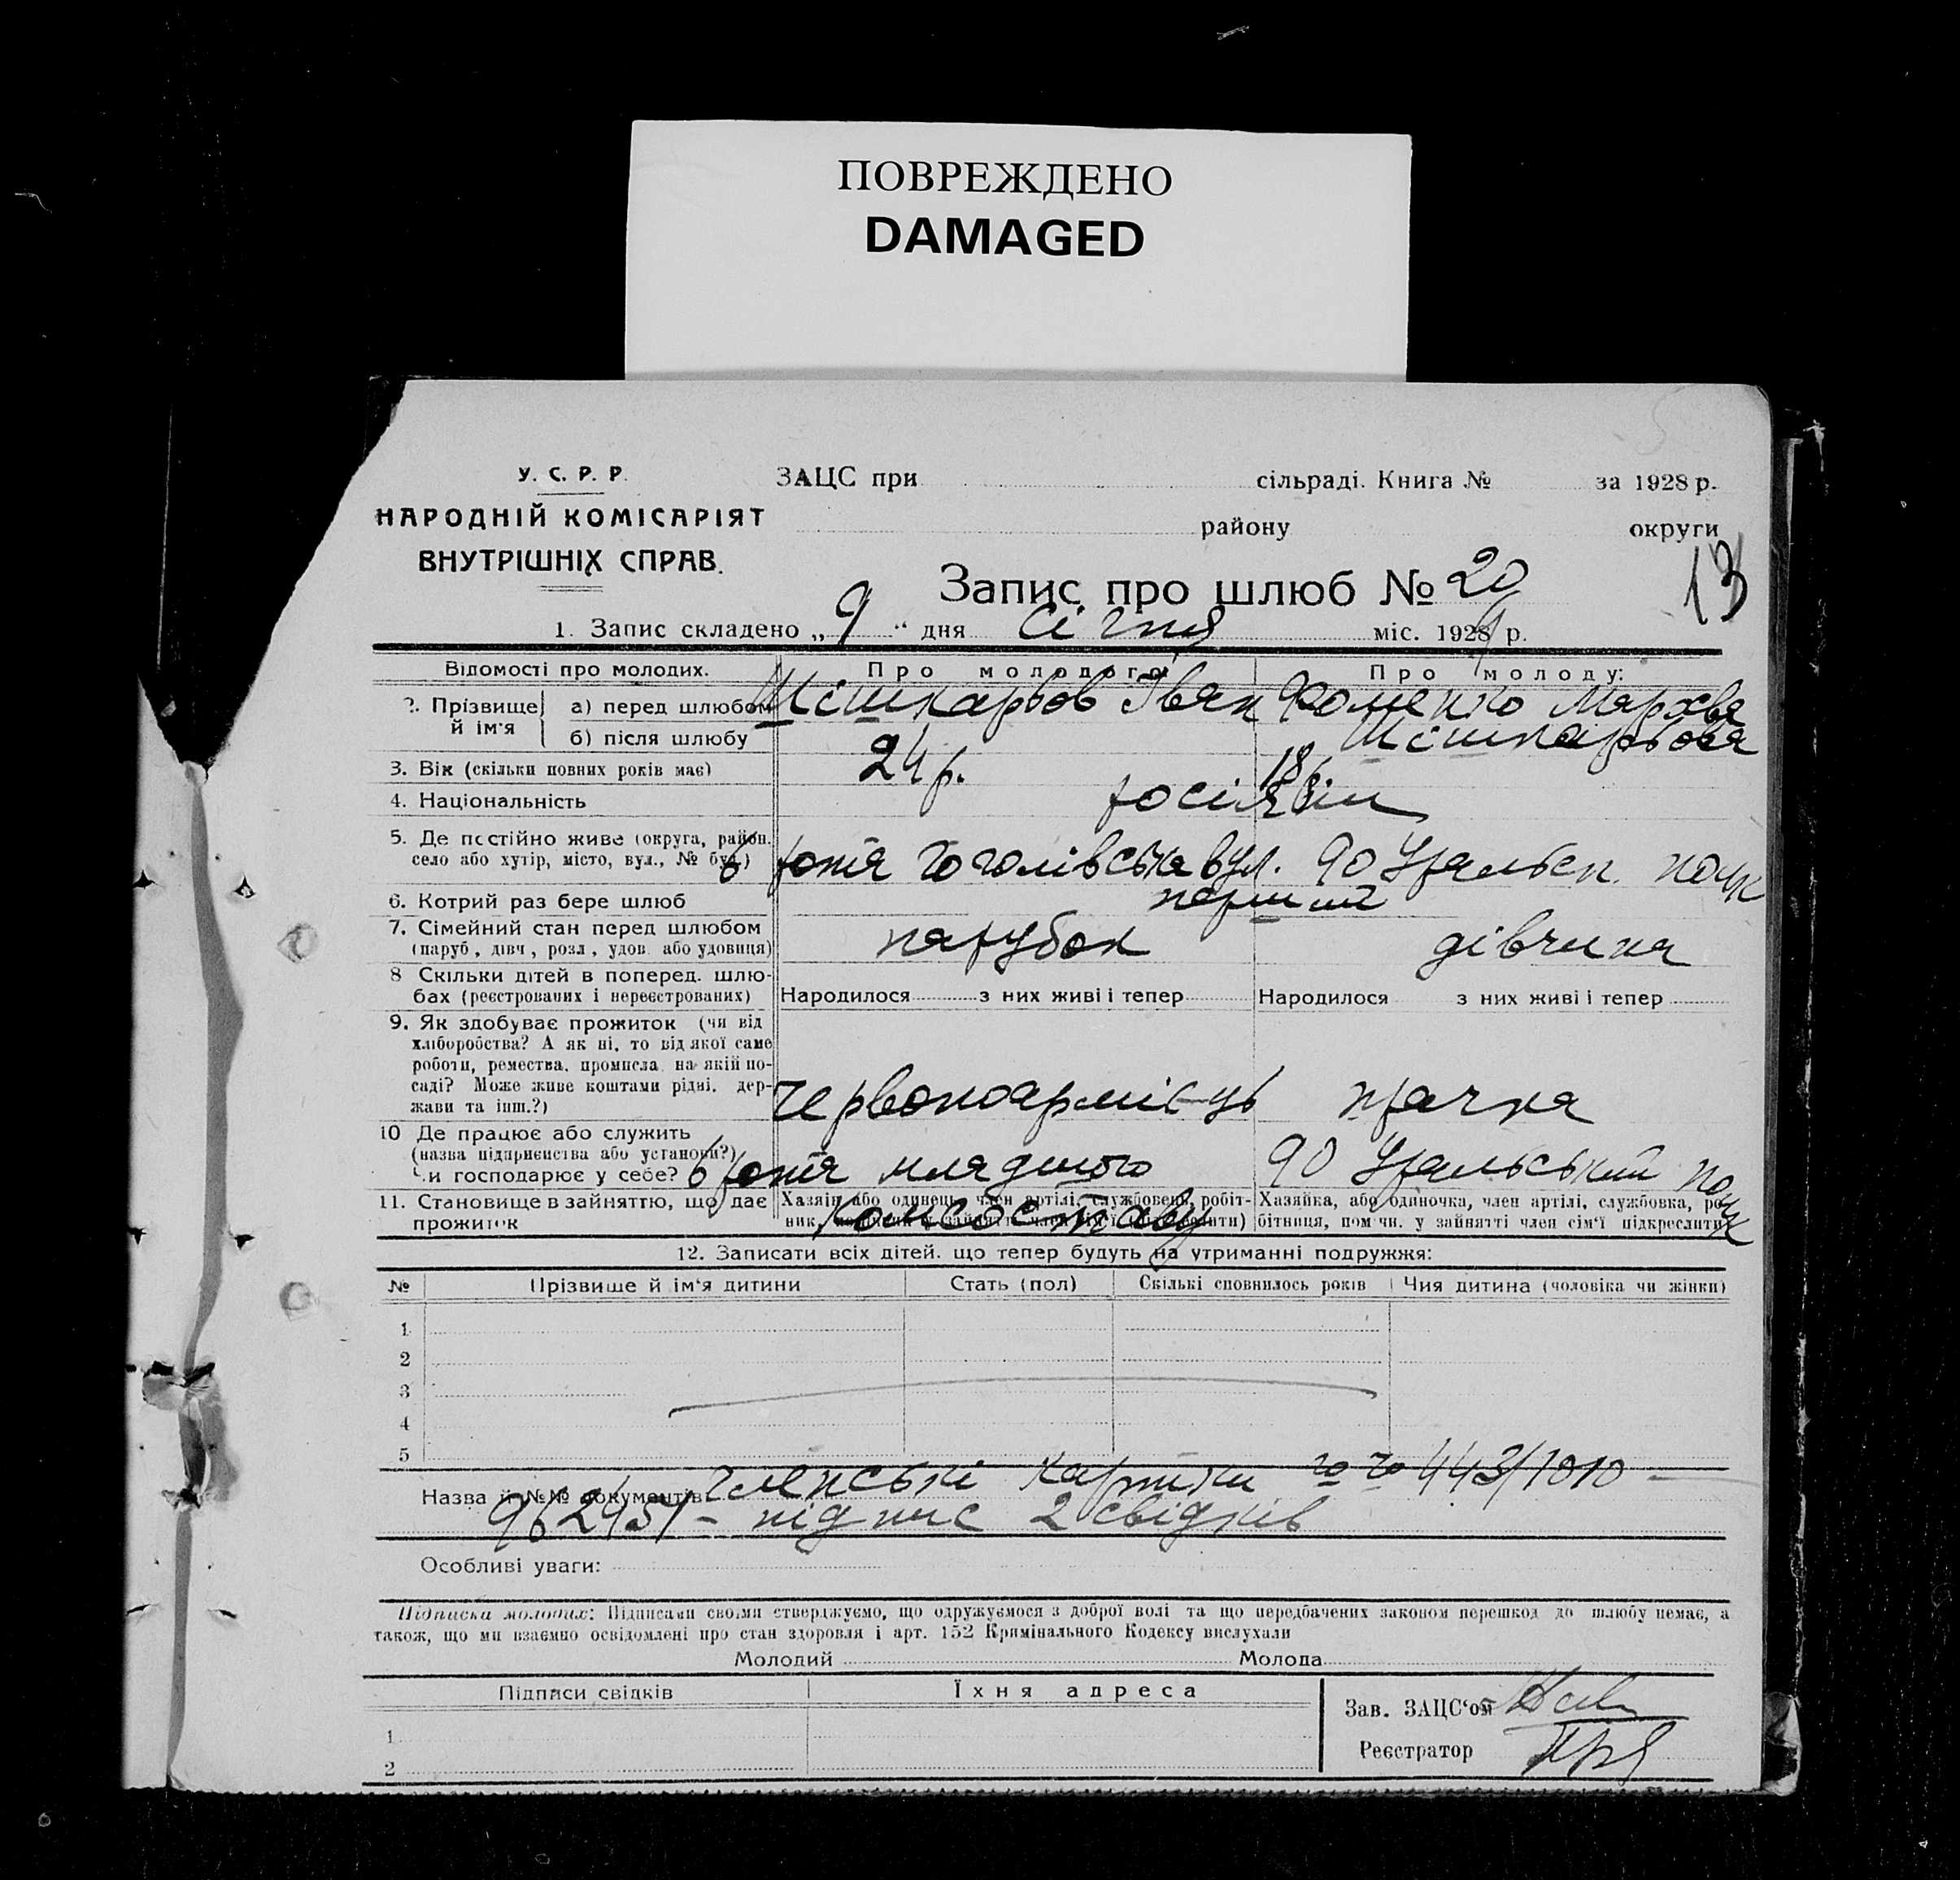 ПОВРЕЖДЕНО
DAMAGED
У. С. Р. Р.
НАРОДНІЙ КОМІСАРІЯТ
ВНУТРІШНІХ СПРАВ.
ЗАЦС при сільраді. Книга № за 1928 р.
району округи
13
Запис про шлюб № 20
1. Запис складено „9“ дня січня міс. 1928 р.
Відомості про молодих. Про молодого: Про молоду:
2. Прізвище й ім'я а) перед шлюбом Шішкарьов Іван Фоменко Марфа
б) після шлюбу Шішкарьова
3. Вік (скільки повних років має) 24 р. 18 р.
4. Національність росіяни
5. Де постійно живе (округа, район, село або хутір, місто, вул., № буд.) 6 рота Гоголівська вул. 90 Уральськ. полк
6. Котрий раз бере шлюб перший
7. Сімейний стан перед шлюбом (паруб., дівч., розл., удов. або удовиця) парубок дівчина
8 Скільки дітей в поперед. шлюбах (реєстрованих і нереєстрованих) Народилося з них живі і тепер Народилося з них живі і тепер
9. Як здобуває прожиток (чи від
хліборобства? А як ні, то від якої саме
роботи, ремества, промисла, на якій по-
саді? Може живе коштами рідні, дер-
жави та інш.?) Червоноармієць прачка
10 Де працює або служить
(назва підприємства або установи?)
Чи господарює у себе? 6 рота младшого комсоставу 90 Уральський полк
11. Становище в зайняттю, що дає прожиток
Хазяїн або одинець, член артілі, службовець, робіт-
Хазяйка, або одиночка, член артілі, службовка, ро-
бітниця, помічн. у зайнятті член сім'ї підкреслити
12. Записати всіх дітей, що тепер будуть на утриманні подружжя:
№ Прізвище й ім'я дитини Стать (пол) Скількі сповнилось років Чия дитина (чоловіка чи жінки)
1
2
3
4
5
Назва й №№ документів членські картки 443/1010 —
962451 – підпис 2 свідків
Особливі уваги:
Підписка молодих: Підписами своїми стверджуємо, що одружуємося з доброї волі та що передбачених законом перешкод до шлюбу немає, а
також, що ми взаємно освідомлені про стан здоровля і арт. 152 Кримінального Кодексу вислухали
Молодий Молода
Підписи свідків Їхня адреса
1
2
Зав. ЗАЦС'ом
Реєстратор